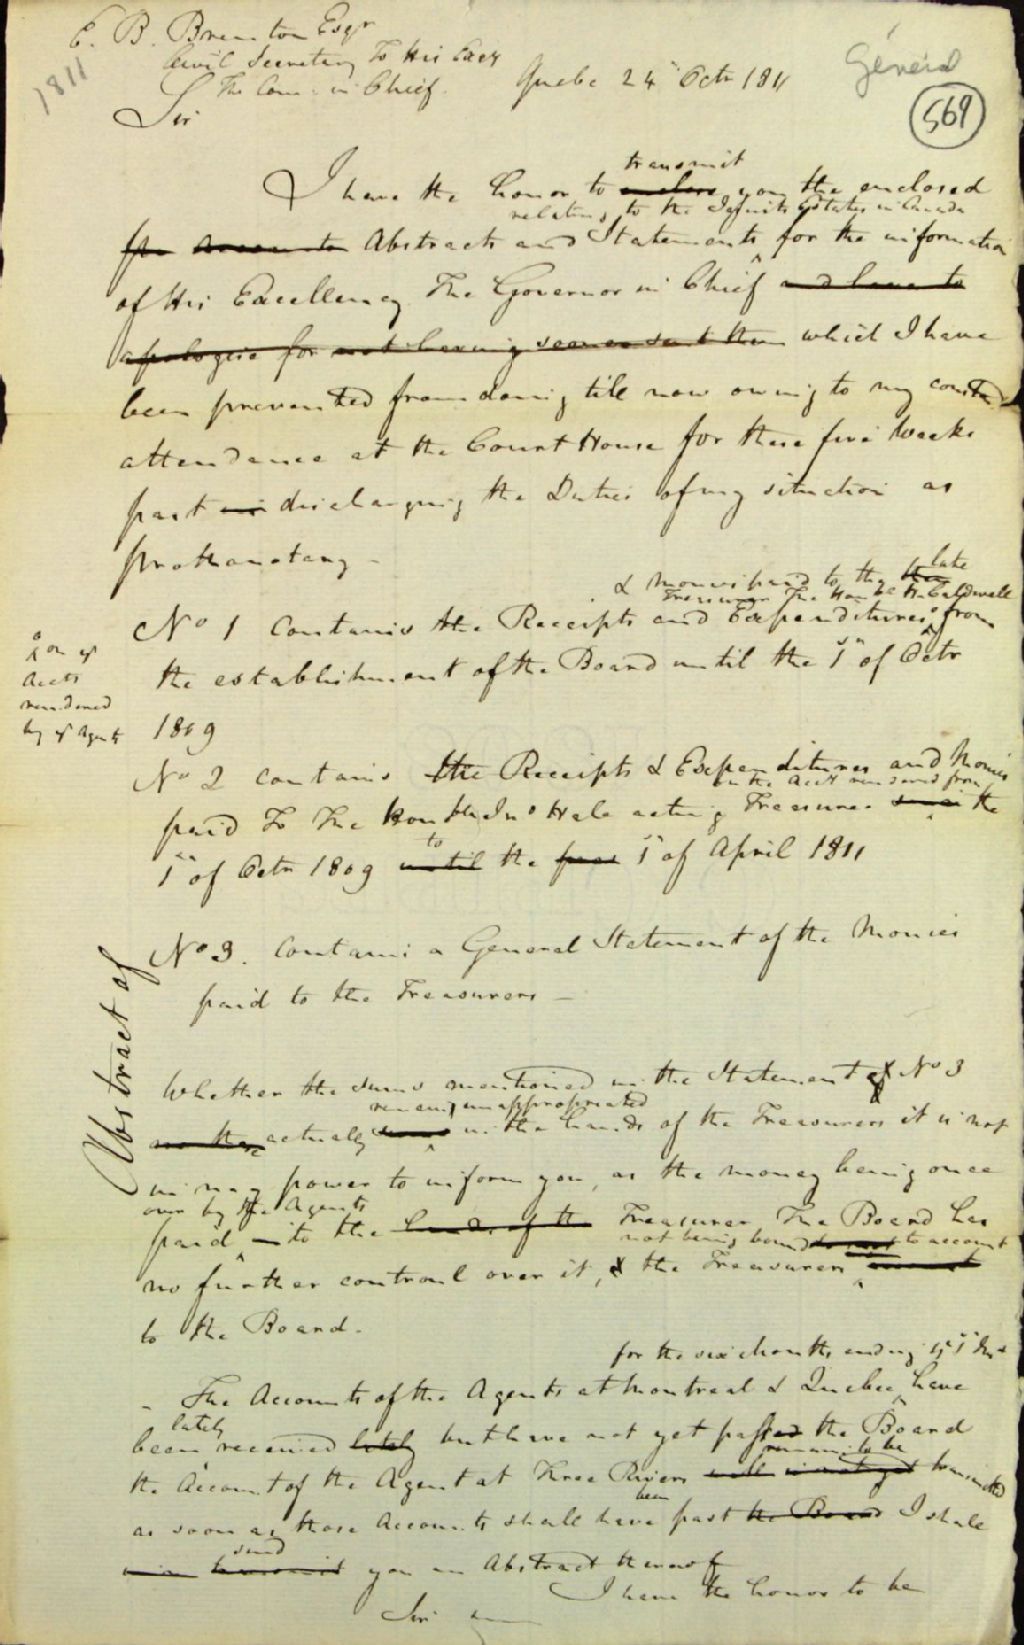 E. B. Brenton Esqr
Civil Secretary To His Excy
The Com. in Chief.
Quebc 24th Octr 1811
1811
General
569
Sir
transmit
I have the honor to enclose you the enclosed
relating to the Jesuits Estates in Canada
for accounts Abstracts and Statements for the information
of His Excellency The Governor in Chief and have to
apologise for not having sooner sent them which I have
been prevented from doing till now owing to my constant
attendance at the Court House for these five Weeks
past in discharging the Duties of my situation as
Prothonotary -
& monies paid to the late
Treasurer The Honble H. Caldwell
No 1 Contains the Receipts and Expenditures from
the establishment of the Board until the 1st of Octr
1809
on ye
Accts
rendered
by ye Agents
No 2 contains the Receipts & Expenditures and Monies
in the acct rendered from
paid To The Honble Jno Hale acting Treasurer since the
to
1st of Octr 1809 until the first 1st of April 1811
No 3. Contains a General Statement of the Monies
paid to the Treasurers -
Abstract of
Whether the sums mentioned in the Statement of No 3
remain unappropriated
are there actually in the hands of the Treasurers it is not
in my power to inform you, as the money being once
over by the Agents
paid into the hands of the Treasurer The Board has
not being bound to account
no further controul over it, & the Treasurers account
to the Board.
for the six months ending ye 1st Inst
- The Accounts of the Agents at Montreal & Quebec have
lately
been received lately but have not yet passed the Board
remains to be
the Account of the Agent at Three Rivers will is not yet transmitted
been
as soon as those Accounts shall have past the Board I shall
send
transmit you an Abstract thereof
I have the honor to be
Sir